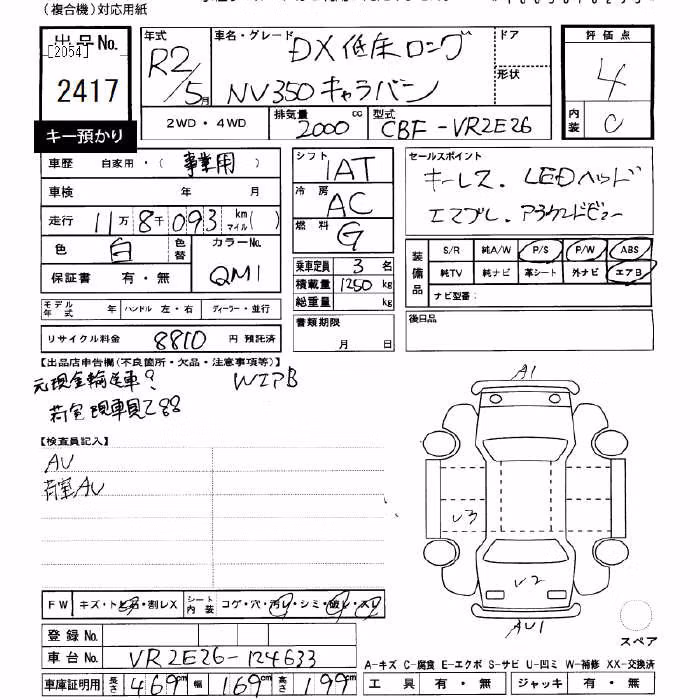 (複合機)対応用紙
出品No.
[2054]
2417
キー預かり
年式
R2/5月
車名・グレード
DX 低床ロング
NV350キャラバン
ドア
形状
2WD・4WD
排気量
2000 cc
型式
CBF-VR2E26
評価点
4
内装
C
車歴 自家用・(事業用)
車検 年 月
走行 11万8千093 km マイル( )
色 白 色替 カラーNo. QM1
保証書 有・無
モデル年式 年 ハンドル 左・右 ディーラー・並行
リサイクル料金 8810 円 預託済
シフト 1AT
冷房 AC
燃料 G
乗車定員 3 名
積載量 1250 kg
総重量 kg
書類期限
月 日
セールスポイント
キーレス. LEDヘッド
エマブレ. アラウンドビュー
装備品
S/R 純A/W P/S P/W ABS
純TV 純ナビ 革シート 外ナビ エアB
ナビ型番:
後日品
【出品店申告欄(不良箇所・欠品・注意事項等)】
元現金輸送車? Wエアb
荷室現車見て
【検査員記入】
AU
荷室AU
A1
U3
U2
AU1
スペア
FW キズ・トビ石・割レX シート内装 コゲ・穴・汚レ・シミ・破レ・スレ
登録No.
車台No. VR2E26-124633
車庫証明用 長さ 469cm 幅 169cm 高さ 199cm
A-キズ C-腐食 E-エクボ S-サビ U-凹ミ W-補修 XX-交換済
工具 有・無 ジャッキ 有・無